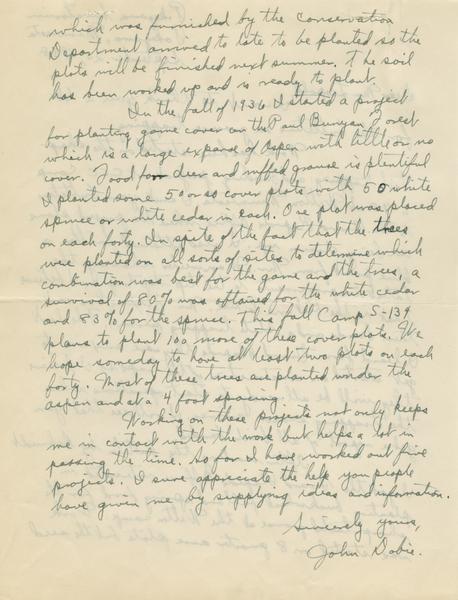 which was furnished by the Conservation
Department arrived to late to be planted so the
plots will be finished next summer. The soil
has been worked up and is ready to plant.
In the fall of 1936 I started a project
for planting game cover on the Paul Bunyan Forest
which is a large expanse of Aspen with little or no
cover. Food for deer and ruffed grouse is plentiful
I planted some 50 or so cover plots with 50 white
spruce or white cedar in each. One plot was placed
on each forty. In spite of the fact that the trees
were planted on all sorts of sites to determine which
combination was best for the game and the trees, a
survival of 80% was obtained for the white cedar
and 83% for the spruce. This fall Camp S-139
plans to plant 100 more of these cover plots. We
hope someday to have at least two plots on each
forty. Most of these trees are planted under the
aspen and at a 4 foot spacing.
Working on these projects not only keeps
me in contact with the work but helps a lot in
passing the time. So far I have worked out five
projects. I sure appreciate the help you people
have given me by supplying ideas and information.
Sincerely yours,
John Dobie.